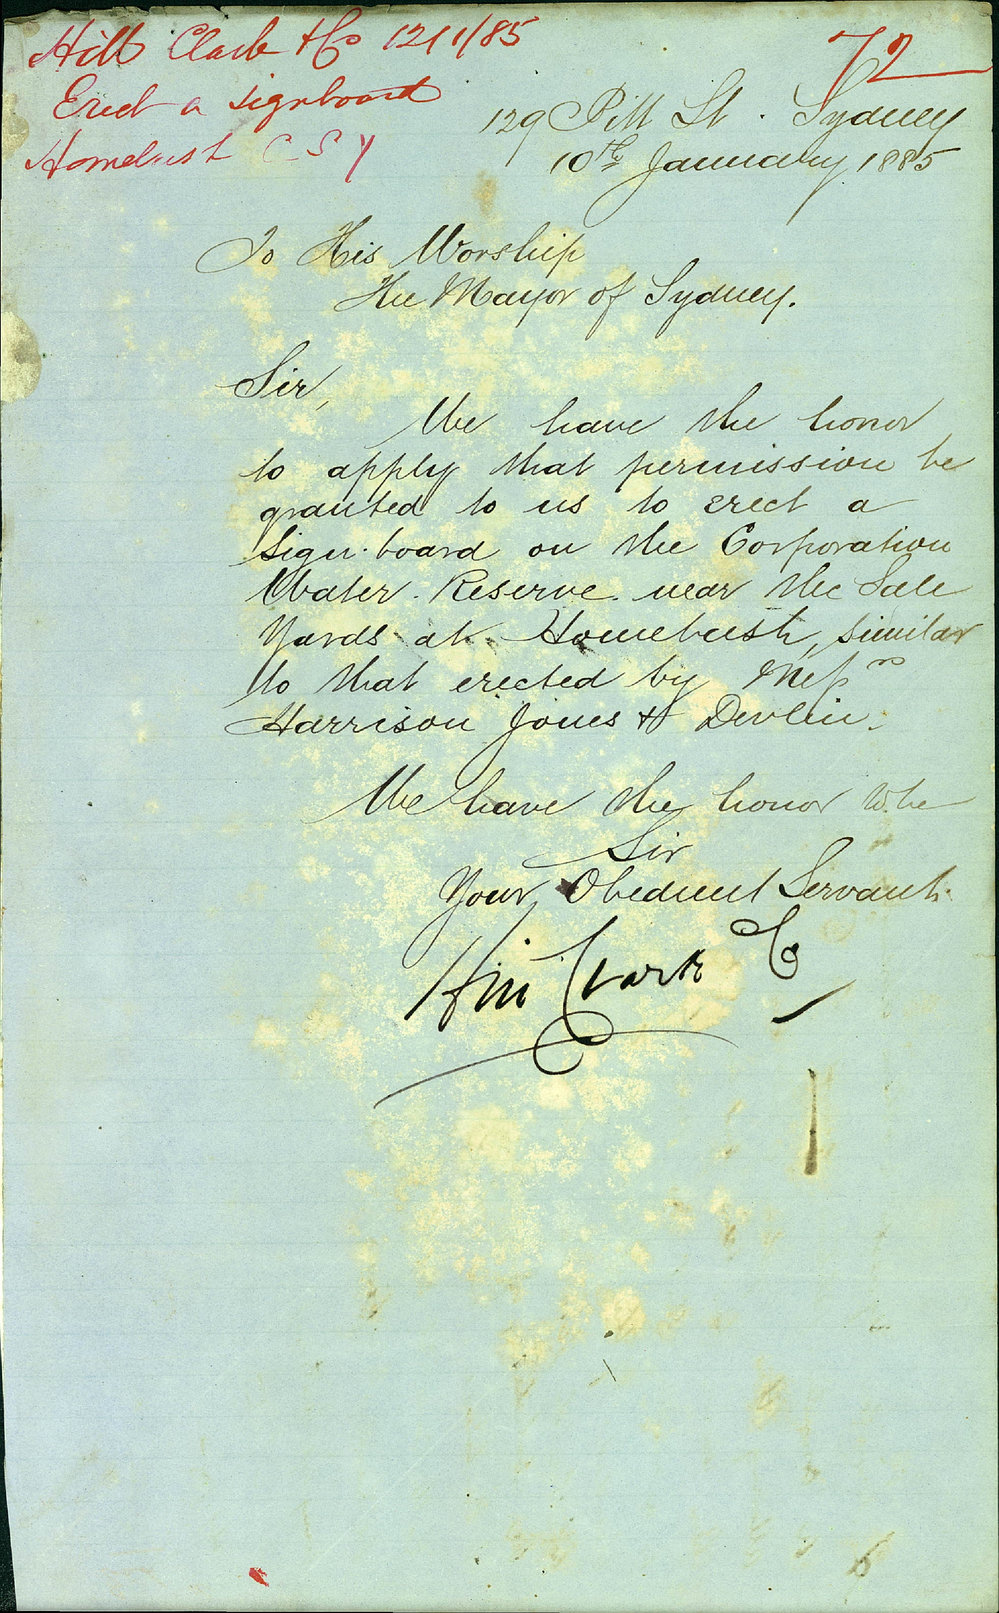 Hill Clark & Co 12/1/85
Erect a signboard
Homebush C S Y
72
129 Pitt St. Sydney
10th January 1885
To His Worship
The Mayor of Sydney.
Sir,
We have the honor
to apply that permission be
granted to us to erect a
Sign-board on the Corporation
Water Reserve near the Sale
Yards at Homebush, similar
to that erected by Messrs
Harrison Jones & Devlin.
We have the honor to be
Sir
Your Obedient Servants
Hill Clark & Co